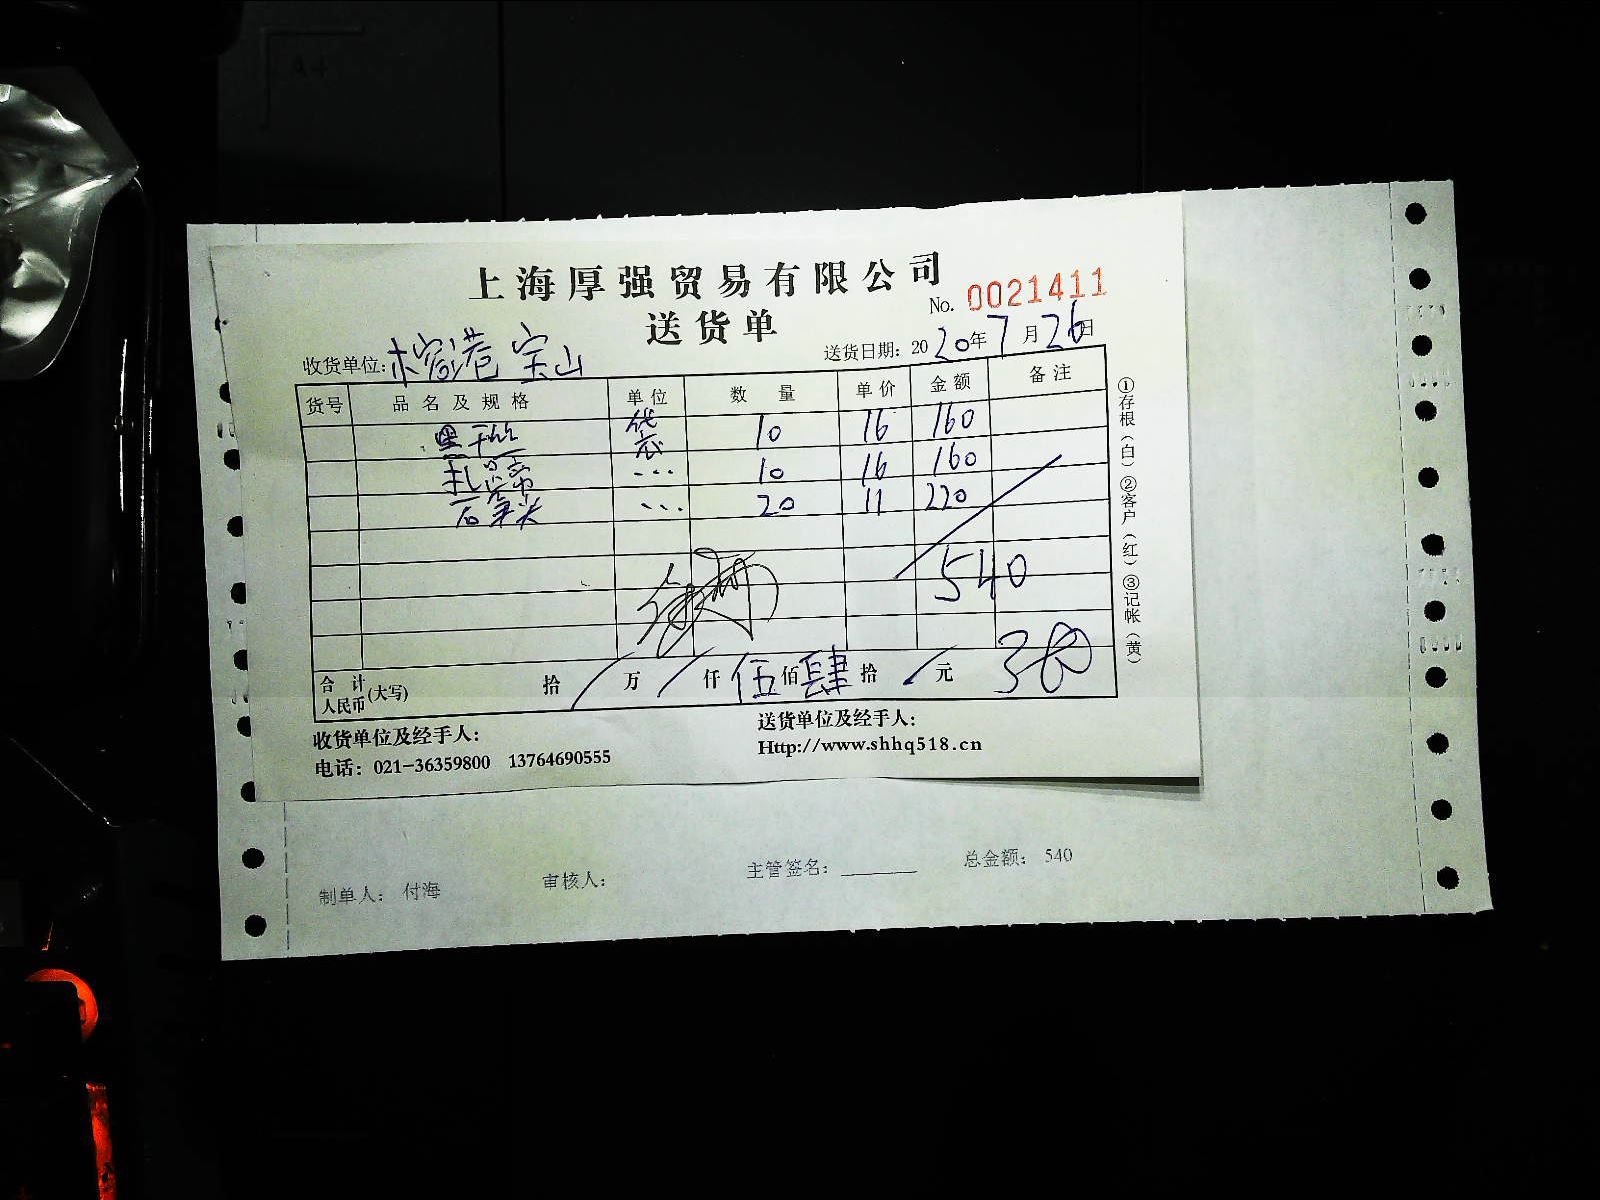 上海厚强贸易有限公司
No. 0021411
送货单
收货单位: 港 宝山
送货日期: 2020年7月26日
货号 品名及规格 单位 数量 单价 金额 备注
黑千丝 袋 10 16 160
10 16 160
20 11 220
540
合计 人民币(大写) 拾 / 万 / 仟 伍 佰 肆 拾 / 元 380
①存根(白) ②客户(红) ③记帐(黄)
收货单位及经手人:
送货单位及经手人:
电话: 021-36359800 13764690555
Http://www.shhq518.cn
制单人: 付海 审核人: 主管签名: 总金额: 540